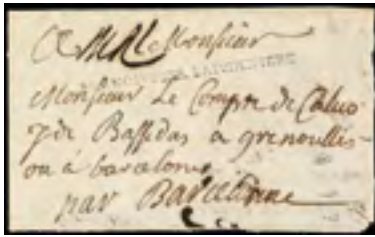 A Monsieur
Monsieur Le Compte de Calvo
y de Bassedas a grenoullis
ou á barcelonne
par Barcelonne